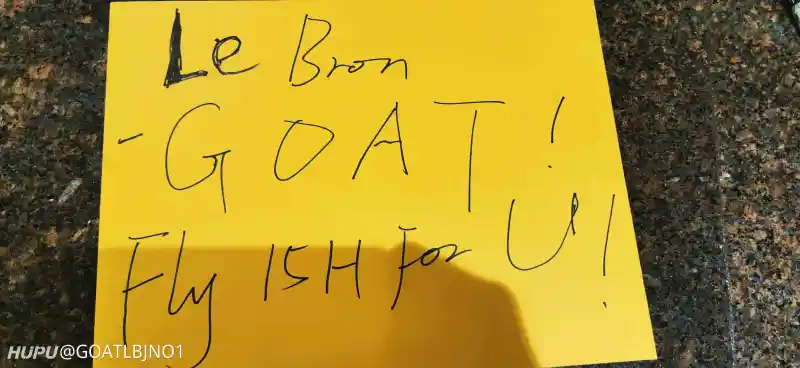 Le Bron
-GOAT!
Fly 15H For U!
HUPU@GOATLBJNO1